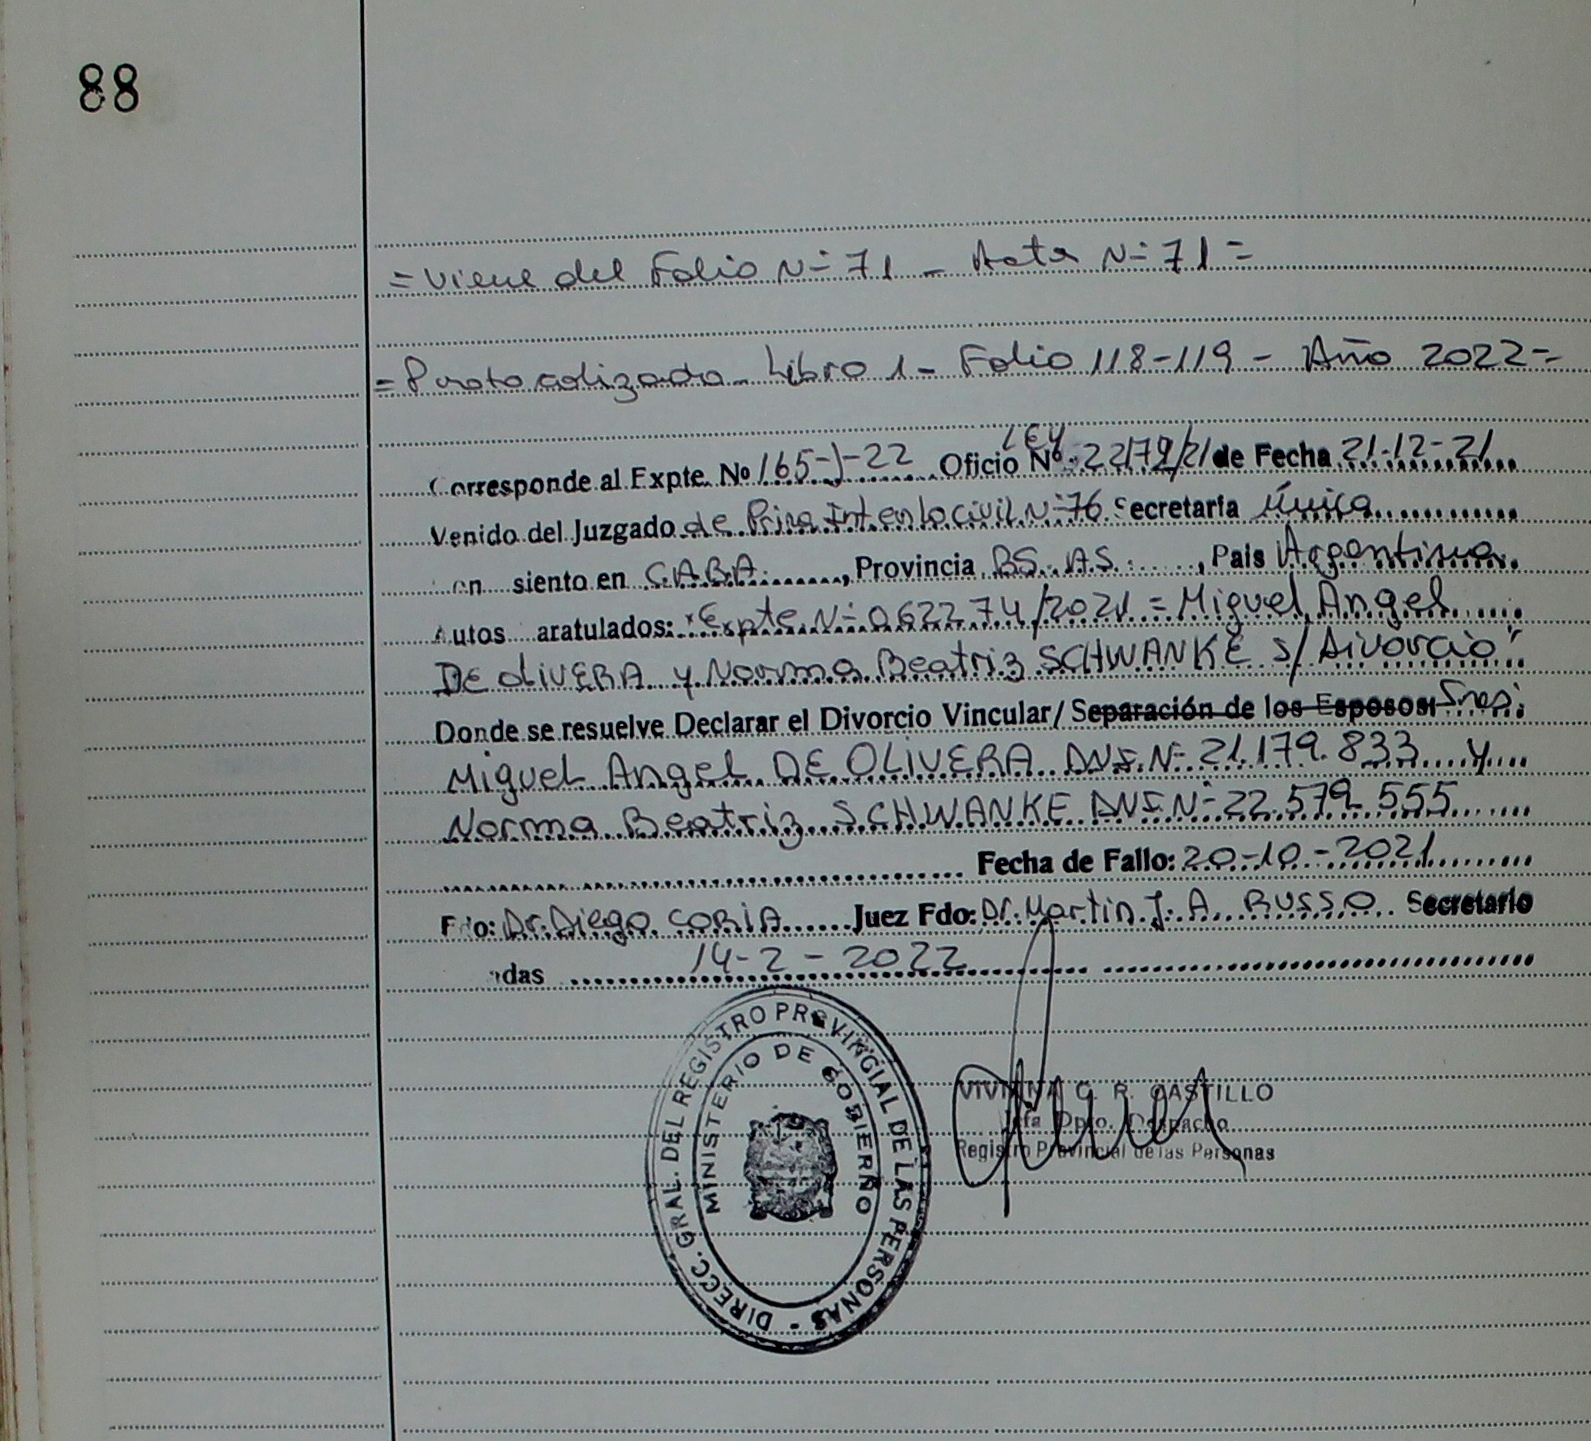 88
= Viene del Folio Nº 71 _ Acta Nº 71 =
= Protocolizada _ Libro 1 _ Folio 118-119 - Año 2022 =
LEY
Corresponde al Expte. Nº 165-J-22 Oficio Nº 22179/21 de Fecha 21-12-21
Venido del Juzgado de Prira Inst en lo civil Nº 76 Secretaría Única
con siento en C.A.B.A. , Provincia BS. AS. , País Argentina
Autos aratulados: "Expte Nº 062274/2021 = Miguel Angel
DE OLIVERA y Norma Beatriz SCHWANKE S/ Divorcio"
Donde se resuelve Declarar el Divorcio Vincular/ Separación de los Esposos: Sres:
Miguel Angel DE OLIVERA DNI. Nº 21.179.833 y
Norma Beatriz SCHWANKE DNI Nº 22.579.555
Fecha de Fallo: 20-10-2021
Fdo: Dr. Diego CORIA Juez Fdo: Dr. Martin J. A. RUSSO Secretario
adas 14-2-2022
DIRECC. GRAL. DEL REGISTRO PROVINCIAL DE LAS PERSONAS -
MINISTERIO DE GOBIERNO
VIVIANA C. R. CASTILLO
Jefa Dpto. Despacho
Registro Provincial de las Personas